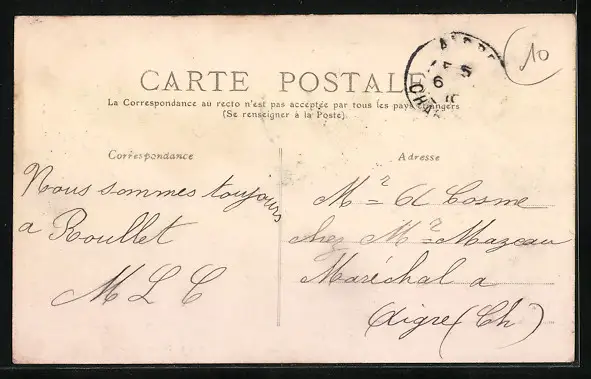 CARTE POSTALE
La Correspondance au recto n'est pas acceptée par tous les pays étrangers
(Se renseigner à la Poste)
10
Correspondance
Nous sommes toujours
a Roullet
M L C
Adresse
Mr A Cosme
chez Mr Mazeau
Maréchal a
Aigre (Ch)